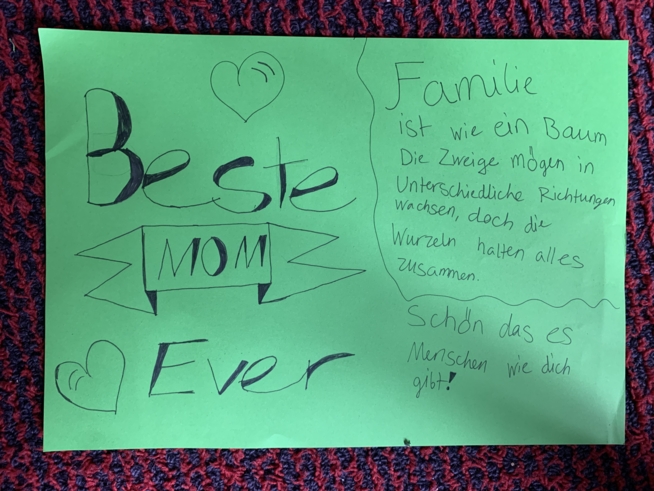 Beste
MOM
Ever
Familie
ist wie ein Baum
Die Zweige mögen in
Unterschiedliche Richtungen
wachsen, doch die
Wurzeln halten alles
zusammen.
Schön das es
Menschen wie dich
gibt!